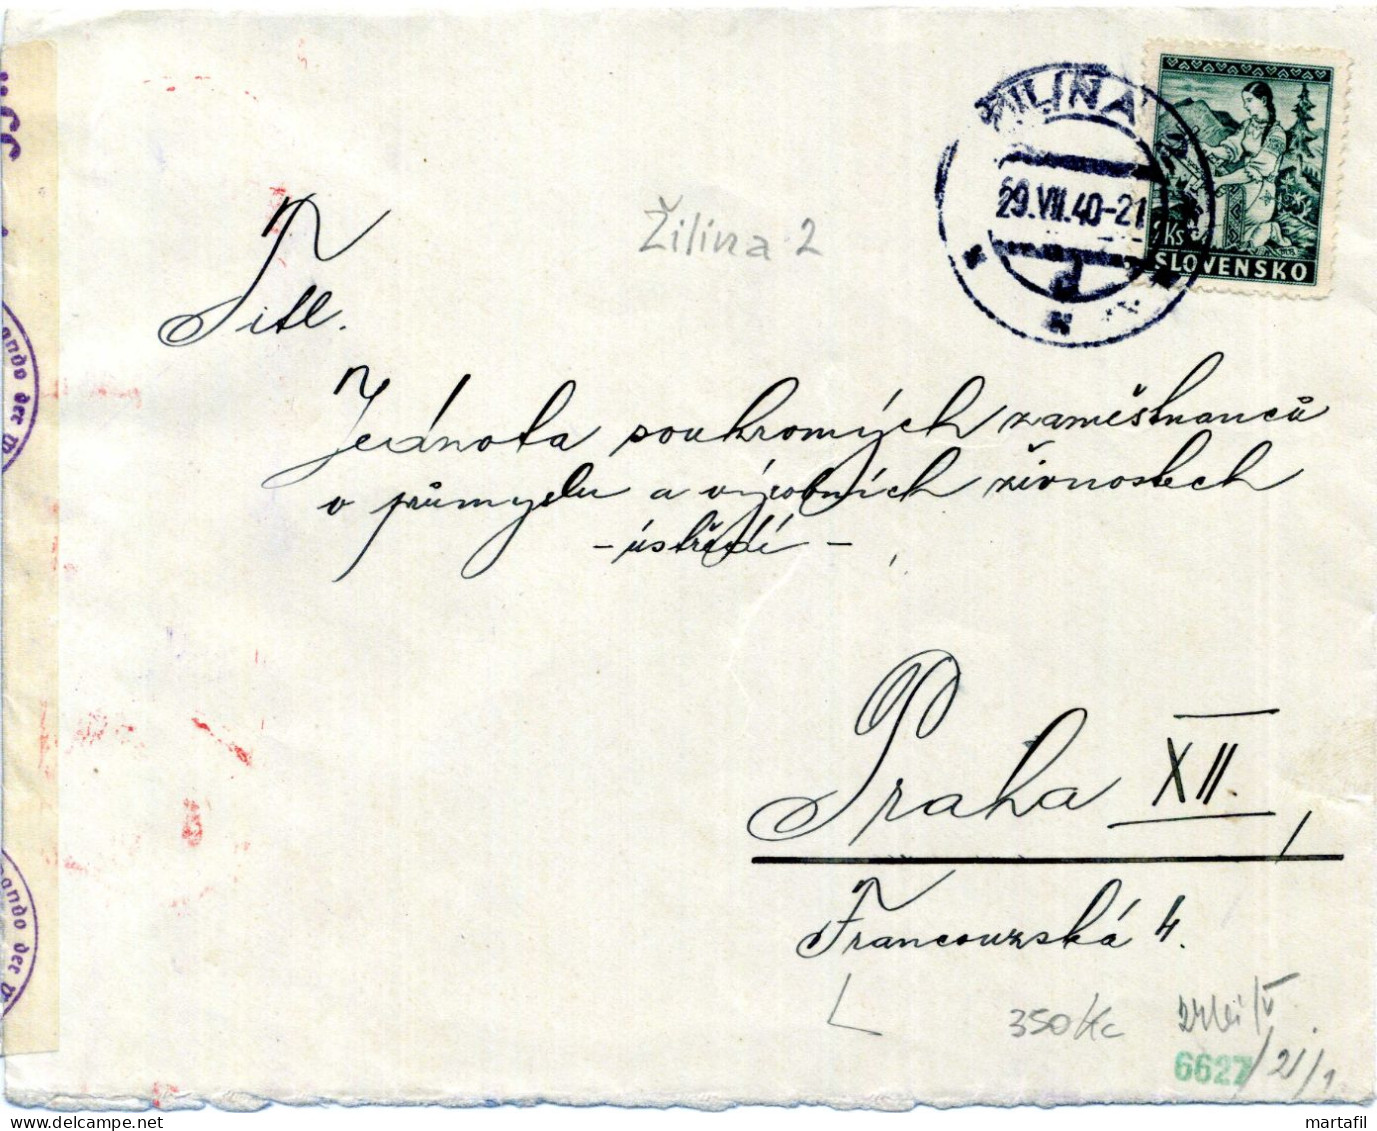 ŽILINA 2
29.VIII.40-21
d
2Ks
SLOVENSKO
Žilina 2
Titl.
Jednota soukromých zaměstnanců
v průmyslu a výrobních živnostech
- ústředí -
Praha XII,
Francouzská 4.
350 Kc
6627/21/1
ando der
ando der
martafil